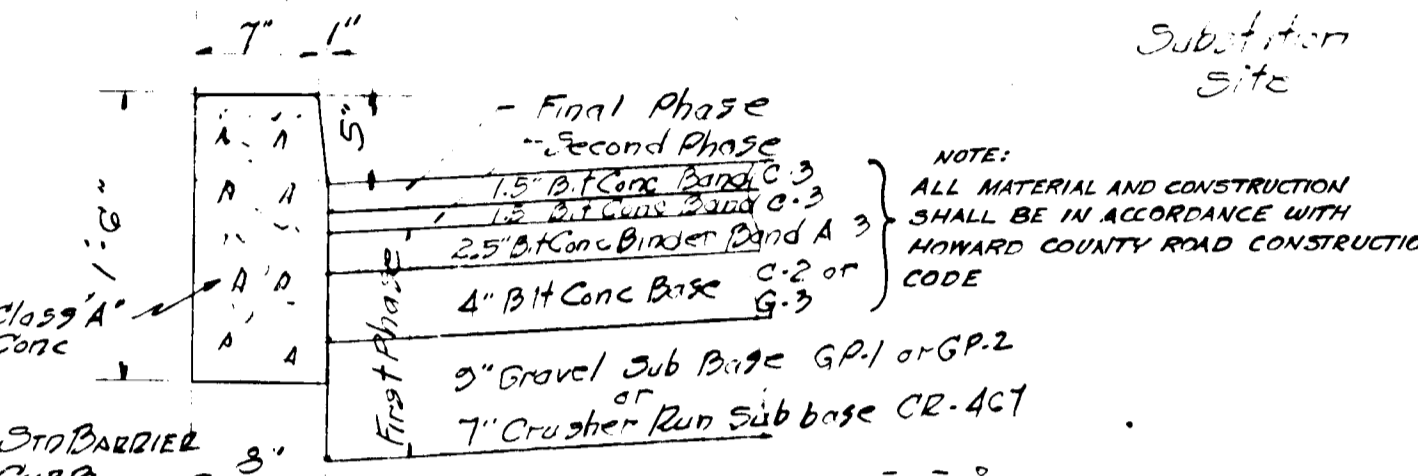 7" 1"
Substition
Site
5"
- Final Phase
--Second Phase
1.5" Bit Conc Band C-3
1.5 Bit Conc Band C-3
2.5" Bit Conc Binder Band A 3
4" Bit Conc Base C-2 or
G-3
9" Gravel Sub Base GP-1 or GP-2
or
7" Crusher Run Subbase CR-467
First Phase
NOTE:
ALL MATERIAL AND CONSTRUCTION
SHALL BE IN ACCORDANCE WITH
HOWARD COUNTY ROAD CONSTRUCTIO
CODE
1'-6"
Class "A"
Conc
A A
A A
A A
A A
STD BARRIER
CURB
8"